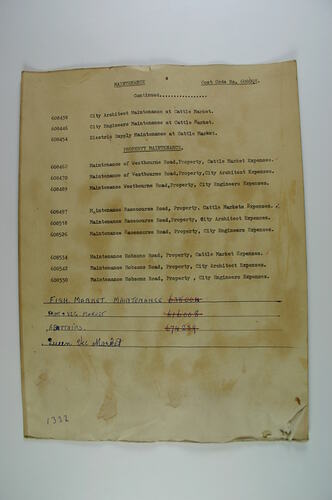 MAINTENANCE Cost Orde No. 600892.
Continued..............
608438 City Architect Maintenance at Cattle Market.
608446 City Engineers Maintenance at Cattle Market.
608454 Electric Supply Maintenance at Cattle Market.
PROPERTY MAINTENANCE.
608462 Maintenance of Westbourne Road, Property, Cattle Market Expenses.
608470 Maintenance of Westbourne Road, Property, City Architect Expenses.
608489 Maintenance Westbourne Road, Property, City Engineers Expenses.
608497 Maintenance Racecourse Road, Property, Cattle Markets Expenses.
608518 Maintenance Racecourse Road, Property, City Architect Expenses.
608526 Maintenance Racecourse Road, Property, City Engineers Expenses.
608534 Maintenance Hobsons Road, Property, Cattle Market Expenses.
608542 Maintenance Hobsons Road, Property, City Architect Expenses.
608550 Maintenance Hobsons Road, Property, City Engineers Expenses.
FISH. MARKET MAINTENANCE
FRUIT & VEG. MARKET
ABATTOIRS.
Queen Vic Market
1332